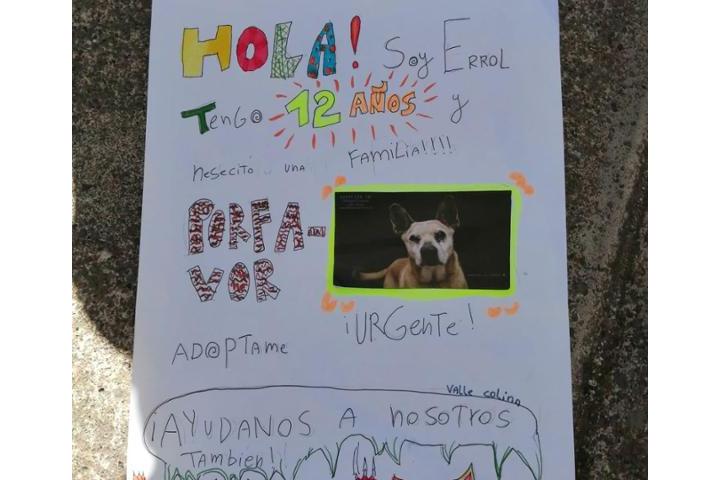 HOLA! Soy Errol
Tengo 12 AÑOS y
nesecito una FAMiLiA!!!!
PORFA-
VOR
¡URGente!
AD@PTAme
Valle colino
¡AYUDANOS A nosotros
TAmbien!!